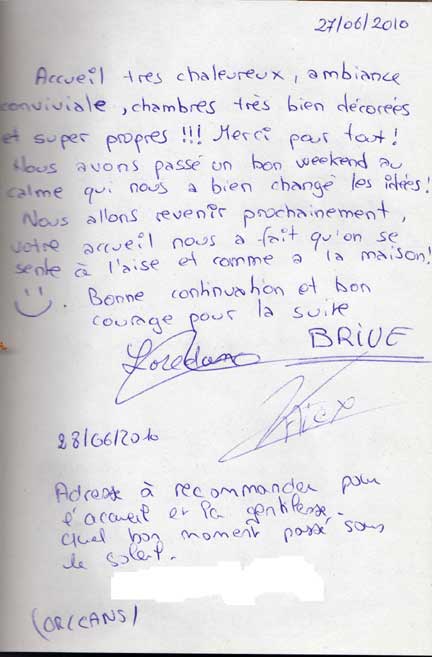 27/06/2010
Accueil très chaleureux, ambiance
conviviale, chambres très bien décorées
et super propres !!! Merci pour tout!
Nous avons passé un bon weekend au
calme qui nous a bien changé les idées!
Nous allons revenir prochainement,
votre accueil nous a fait qu'on se
sente à l'aise et comme a la maison!
. Bonne continuation et bon
courage pour la suite
BRIVE
Loredana
28/06/2010
Adresse à recommander pour
l'accueil et la gentillesse.
Quel bon moment passé sous
le soleil.
(ORLEANS)